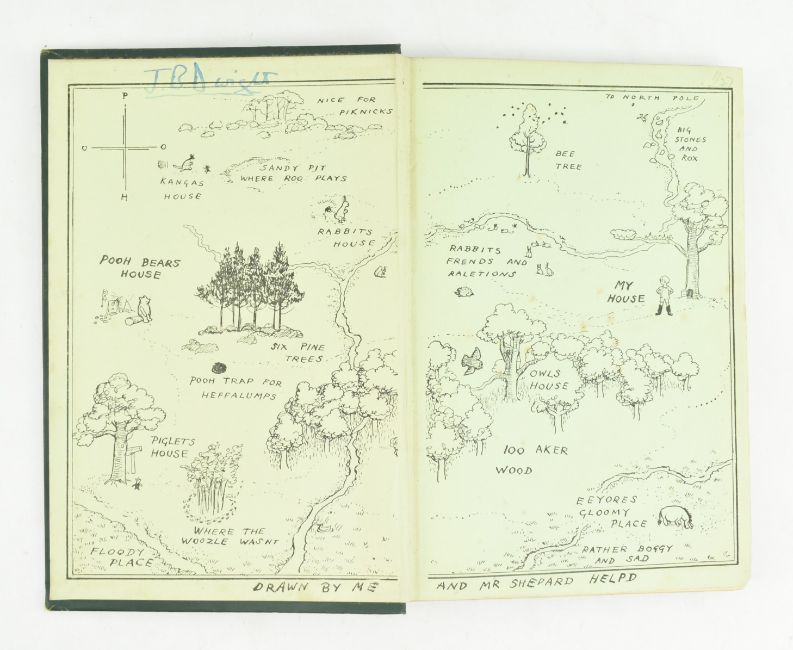 J. B. Dwight
P
O O
H
NICE FOR
PIKNICKS
KANGAS
HOUSE
SANDY PIT
WHERE ROO PLAYS
RABBITS
HOUSE
POOH BEARS
HOUSE
SIX PINE
TREES
POOH TRAP FOR
HEFFALUMPS
PIGLETS
HOUSE
WHERE THE
WOOZLE WASNT
FLOODY
PLACE
DRAWN BY ME
TO NORTH POLE
BIG
STONES
AND
ROX
BEE
TREE
RABBITS
FRENDS AND
RALETIONS
MY
HOUSE
OWLS
HOUSE
100 AKER
WOOD
EEYORES
GLOOMY
PLACE
RATHER BOGGY
AND SAD
AND MR SHEPARD HELPD